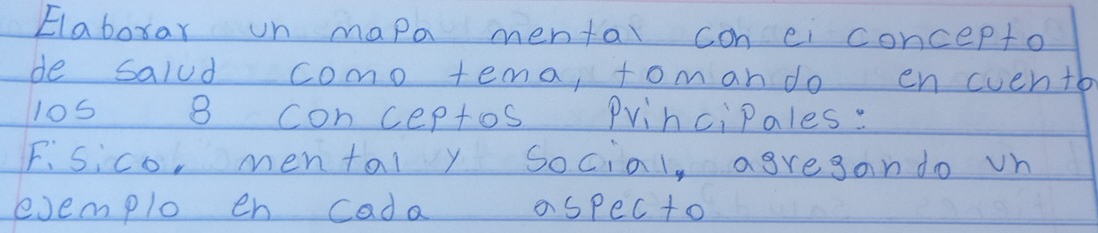 Elaborar un mapa mental con el concepto
de salud como tema, tomando en cuenta
los 8 conceptos principales:
Físico, mental y social, agregando un
ejemplo en cada aspecto